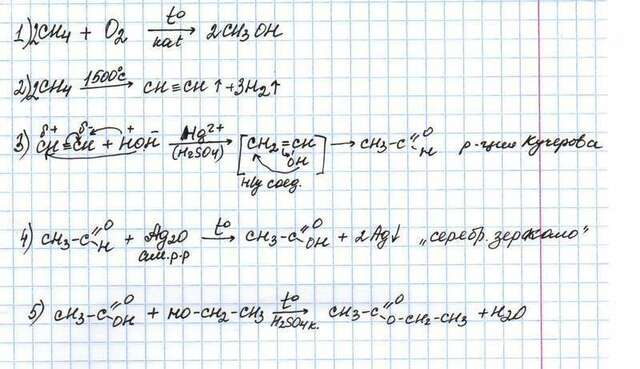 1) 2CH4 + O2 t° kat → 2CH3OH
2) 2CH4 1500°C → CH≡CH↑ + 3H2↑
3) δ+ δ- CH≡CH + HOH + - Hg2+ (H2SO4) → [CH2=CH OH] → CH3-C =O -H р-ция Кучерова
н/у соед.
4) CH3-C =O -H + Ag2O t° → CH3-C =O -OH + 2Ag↓ „серебр. зеркало"
ам. р-р
5) CH3-C =O -OH + HO-CH2-CH3 t° H2SO4 к. → CH3-C =O -O-CH2-CH3 + H2O